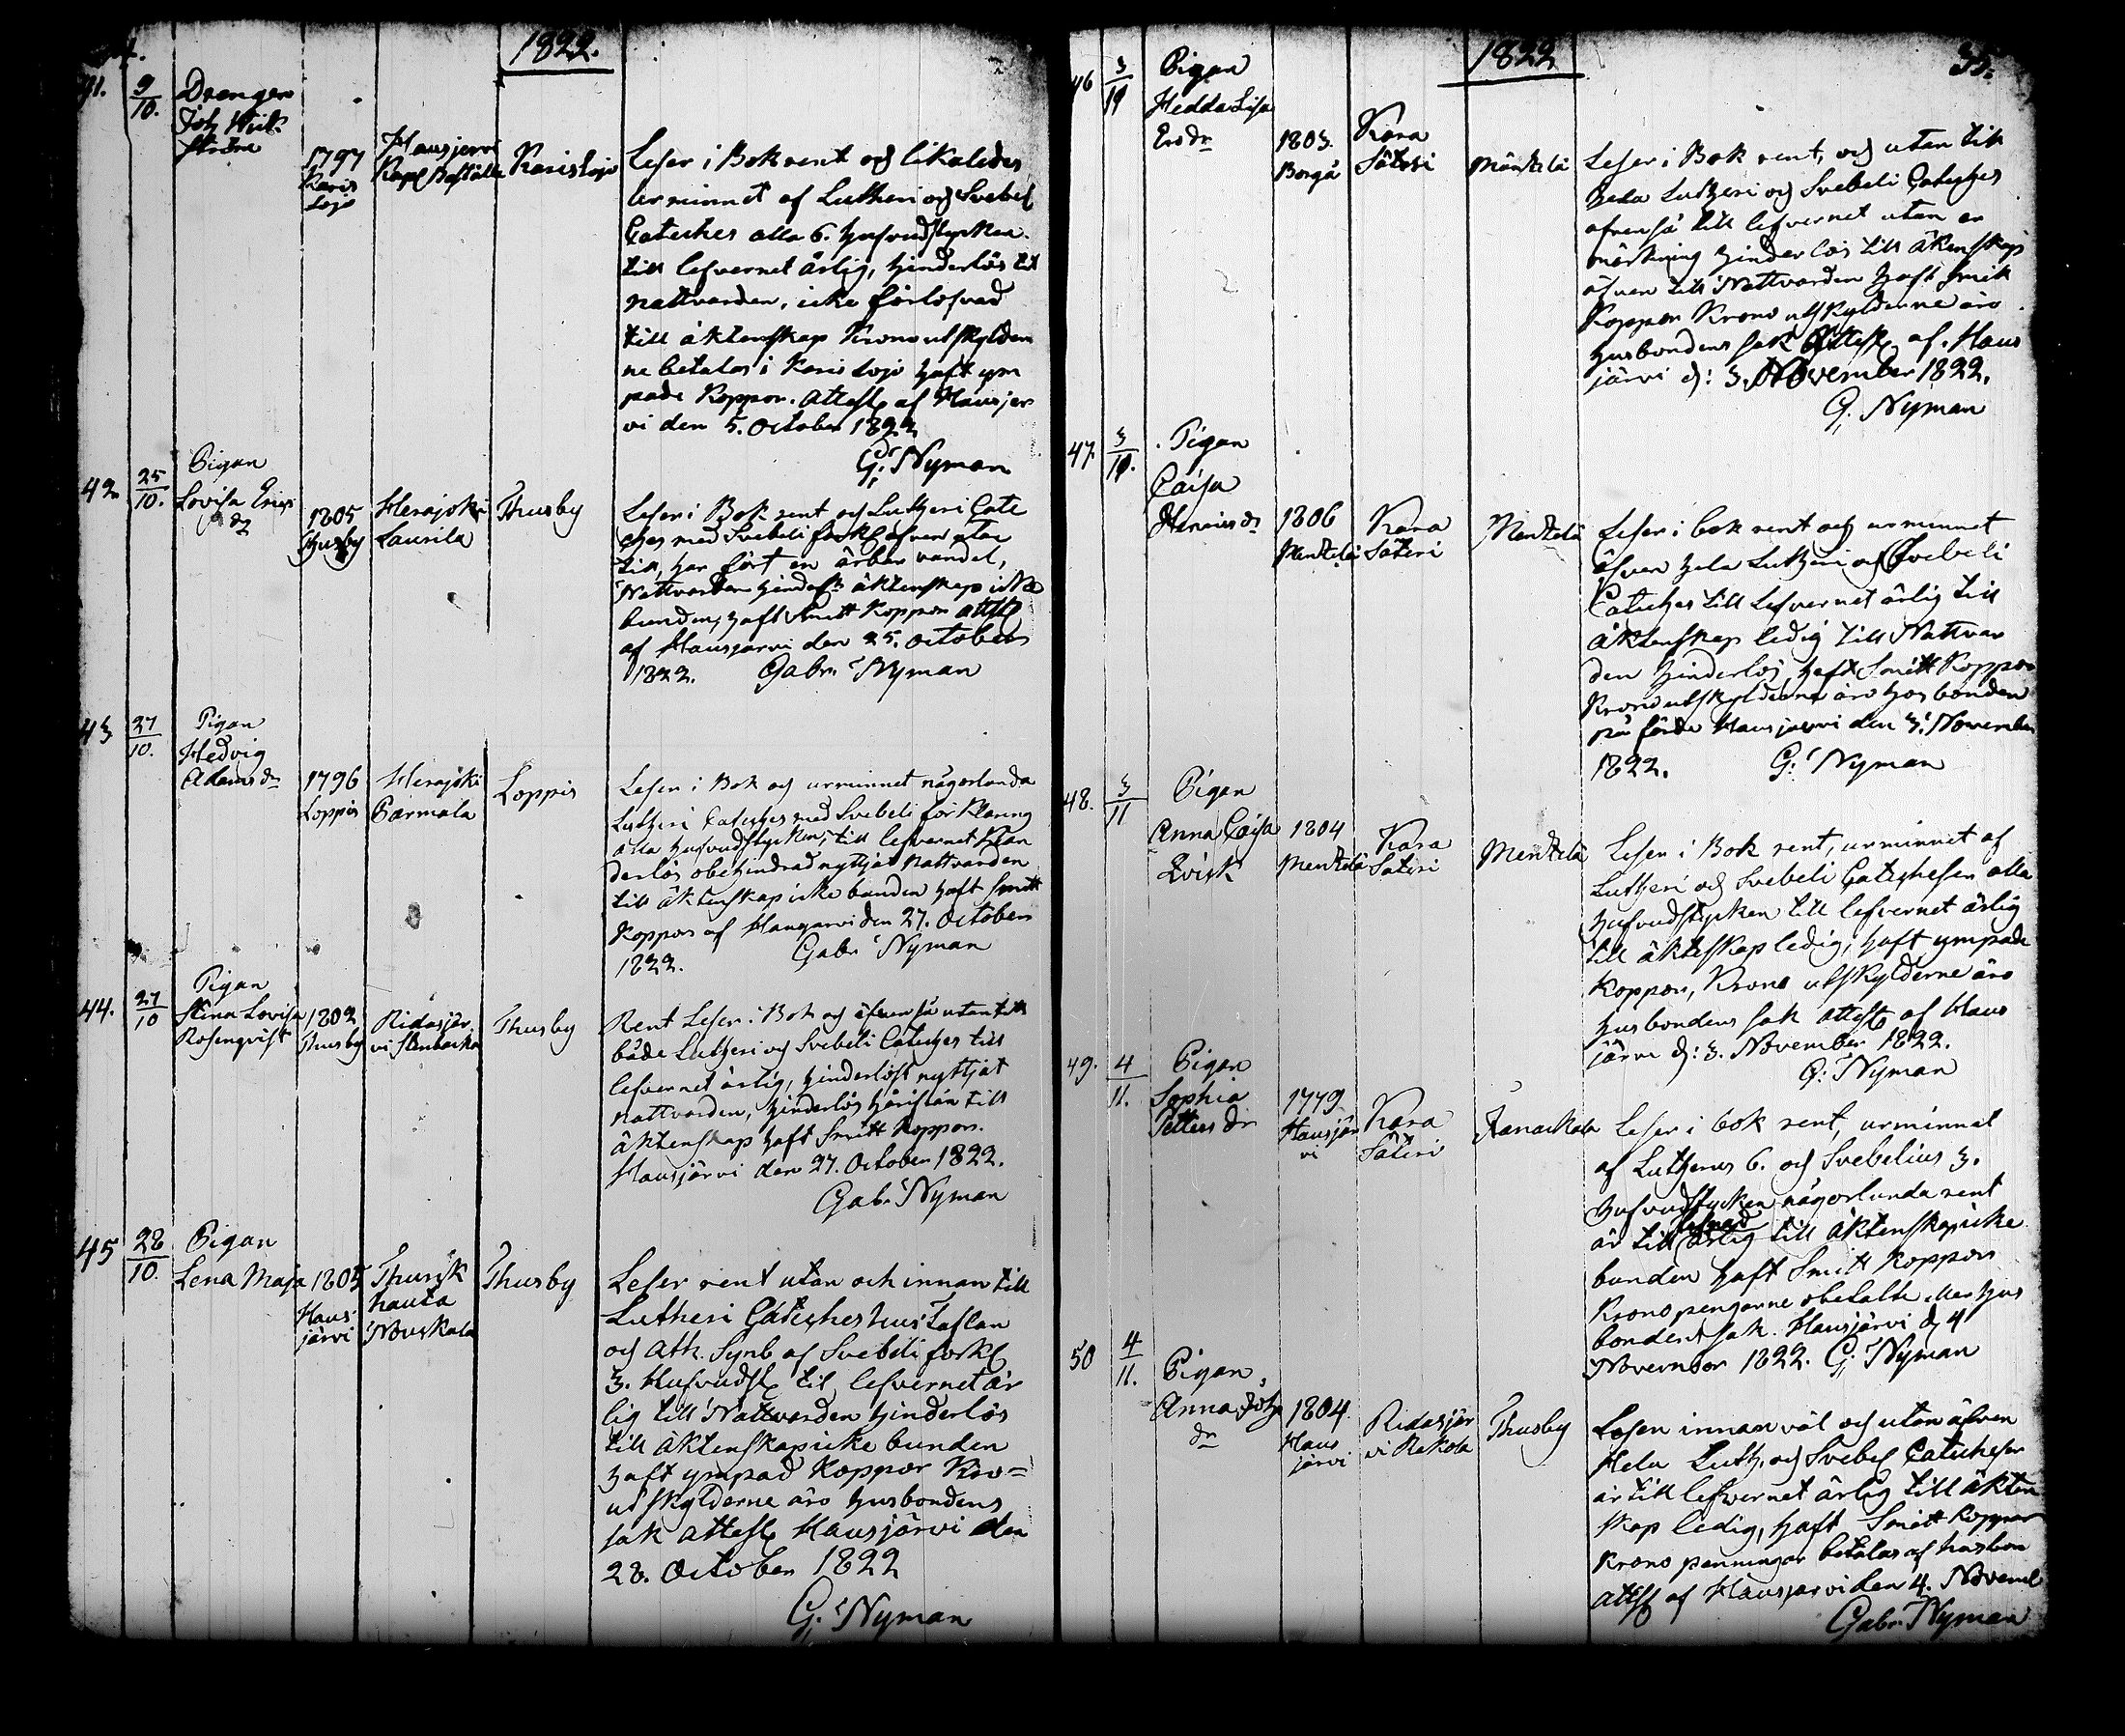 1822.
41.
9/10.
Drengen
Joh
1797
Karis
Lojo
Hausjervi
Kapl Boställe
Karislojo
Leser i Bok rent och likaledes
urminnet af Lutheri och Svebel
Cateches alla 6. hufvudstycken
till lefvernet ärlig, hinderlös till
nattvarden, icke förlofvad
till äktenskap Krono utskylder
ne betalas i Karis Lojo haft ym
pade Koppor. Attest af Hausjer
vi den 5. October 1822
G. Nyman
42
25/10.
Pigan
Lovisa Erics
dr
1805
Thusby
Herajoki
Laurila
Thusby
Leser i Bok rent och Lutheri Cate
ches med Svebeli förkl äfven utan
till, har fört en ärbar vandel,
Nattvarden äktenskap
bunden, haft Smitt Koppor attest
af Hausjärvi den 25. October
1822. Gabr. Nyman
43
27/10.
Pigan
Hedvig
Adams dr
1796
Loppis
Herajoki
Parmala
Loppis
Leser i Bok och urminnet någorlunda
Lutheri Cateches med Svebeli förklaring
alla hufvudstycken, till lefvernet klan
derlös obehindrad nyttjat nattvarden
till äktenskap icke bunden haft Smitt
Koppor af Hausjarvi den 27. October
1822. Gabr. Nyman
44.
27/10
Pigan
Stina Lovisa
Rosenqvist
1802
Thusby
Ridasjär
vi Stenbacka
Thusby
Rent Leser i Bok och äfven så utantill
både Lutheri och Svebeli Cateches till
lefvernet ärlig, hinderlöst nyttjat
nattvarden, hinderlös härifrån till
äktenskap haft Smitt Koppor.
Hausjärvi den 27. October 1822.
Gabr. Nyman
45
28/10.
Pigan
Lena Maja
1805
Haus
järvi
Thurik
hauta
Nouskala
Thusby
Leser rent utan och innan till
Lutheri Cateches hus taflan
och Ath. Symb af Svebeli förkl
3. Hufvudst til lefvernet är
lig till Nattvarden hinderlös
till äktenskap icke bunden
haft ympad Koppor Kro=
utskylderne äro husbondens
sak attest Hausjärvi den
28. October 1822
G. Nyman
1822
35.
46
3/11
Pigan
Hedda Lisa
Ers dr
1803.
Borgå
Kara
Säteri
Mäntselä
Leser i Bok rent, och utan till
hela Lutheri och Svebeli Cateches
äfven så till lefvernet utan an
märkning hinder lös till äktenskap
äfven till Nattvarden haft Smitt
Koppor Krono utskylderne äro
husbondens sak Attest af Haus
järvi d: 3. November 1822.
G. Nyman
47.
3/11.
Pigan
Caisa
Henrics dr
1806
Mentzelä
Kara
Säteri
Mentzelä
Leser i bok rent och urminnet
äfven hela Lutheri och Svebeli
Cateches till Lefvernet ärlig till
äktenskap ledig till Nattvar
den hinderlös, haft Smitt Koppor
Krono utskylderne äro hos bonden
på förde Hausjarvi den 3. November
1822. G. Nyman
48.
3/11
Pigan
Anna Caisa
Qvick
1804
Mentzelä
Kara
Säteri
Mentzelä
Leser i Bok rent, urminnet af
Lutheri och Svebeli Catechesen alla
hufvudstycken till lefvernet ärlig
till äkteskap ledig, haft ympade
Koppor, Krono utskylderne äro
husbondens sak attest af Haus
järvi d: 3. November 1822.
G. Nyman
49.
4/11.
Pigan
Sophia
Petters dr
1779
Hausjär
vi
Kara
Säteri
Janackala
Leser i bok rent, urminnet
af Lutherus 6. och Svebelius 3.
hufvudstycken någorlunda rent
är till lefnad ärlig till äktenskap icke
bunden haft Smitt Koppor
Krono pengarne obetalte hus
bondens sak. Hausjärvi d 4
November 1822. G. Nyman
50
4/11.
Pigan
Anna Joh
dr
1804.
Haus
järvi
Ridasjär
vi Rekola
Thusby
Leser innan väl och utan äfven
Hela Luth. och Svebel Catecheser
är till lefvernet ärlig till äkten
skap ledig, haft Smitt Koppor
Krono penningar betalas af husbon
attest af Hausjarvi den 4. Novemb
Gabr. Nyman